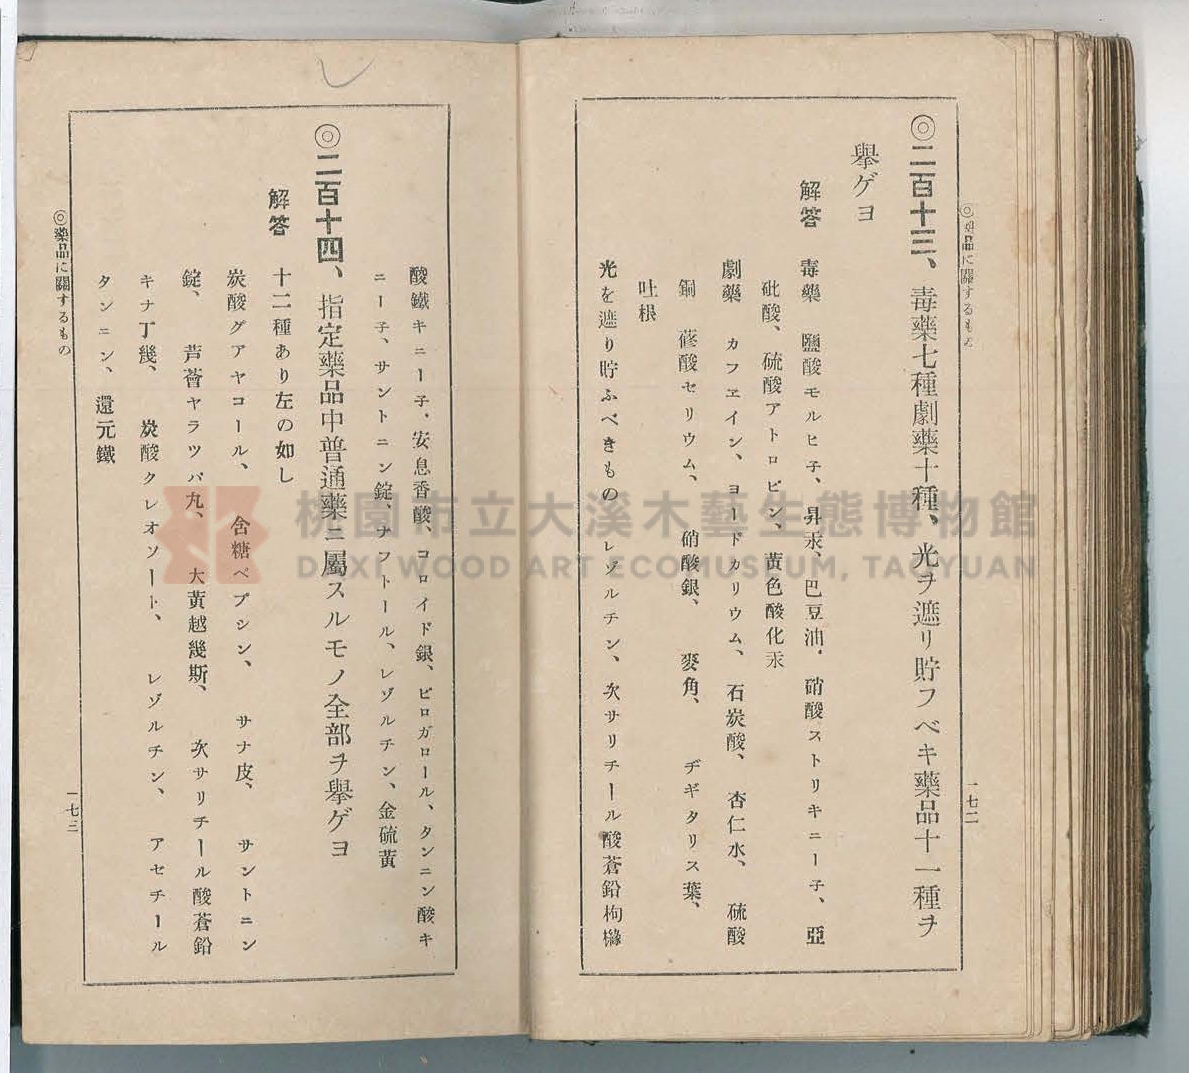 ◎藥品に關するもの
一七二
◎二百十三、毒藥七種劇藥十種、光ヲ遮リ貯フベキ藥品十一種ヲ
擧ゲヨ
解答 毒藥 鹽酸モルヒ子、昇汞、巴豆油、硝酸ストリキニー子、亞
砒酸、硫酸アトロピン、黃色酸化汞
劇藥 カフエイン、ヨードカリウム、石炭酸、杏仁水、硫酸
銅 蓚酸セリウム、硝酸銀、麥角、ヂギタリス葉、
吐根
光を遮り貯ふべきもの レゾルチン、次サリチール酸蒼鉛枸櫞
酸鐵キニー子、安息香酸、コロイド銀、ピロガロール、タンニン酸キ
ニー子、サントニン錠、ナフトール、レゾルチン、金硫黃
◎二百十四、指定藥品中普通藥ニ屬スルモノ全部ヲ擧ゲヨ
解答 十二種あり左の如し
炭酸グアヤコール、含糖ペプシン、サナ皮、サントニン
錠、芦薈ヤラツパ丸、大黃越幾斯、次サリチール酸蒼鉛
キナ丁幾、炭酸クレオソート、レゾルチン、アセチール
タンニン、還元鐵
◎藥品に關するもの
一七三
桃園市立大溪木藝生態博物館
DAXI WOOD ART ECOMUSEUM, TAOYUAN